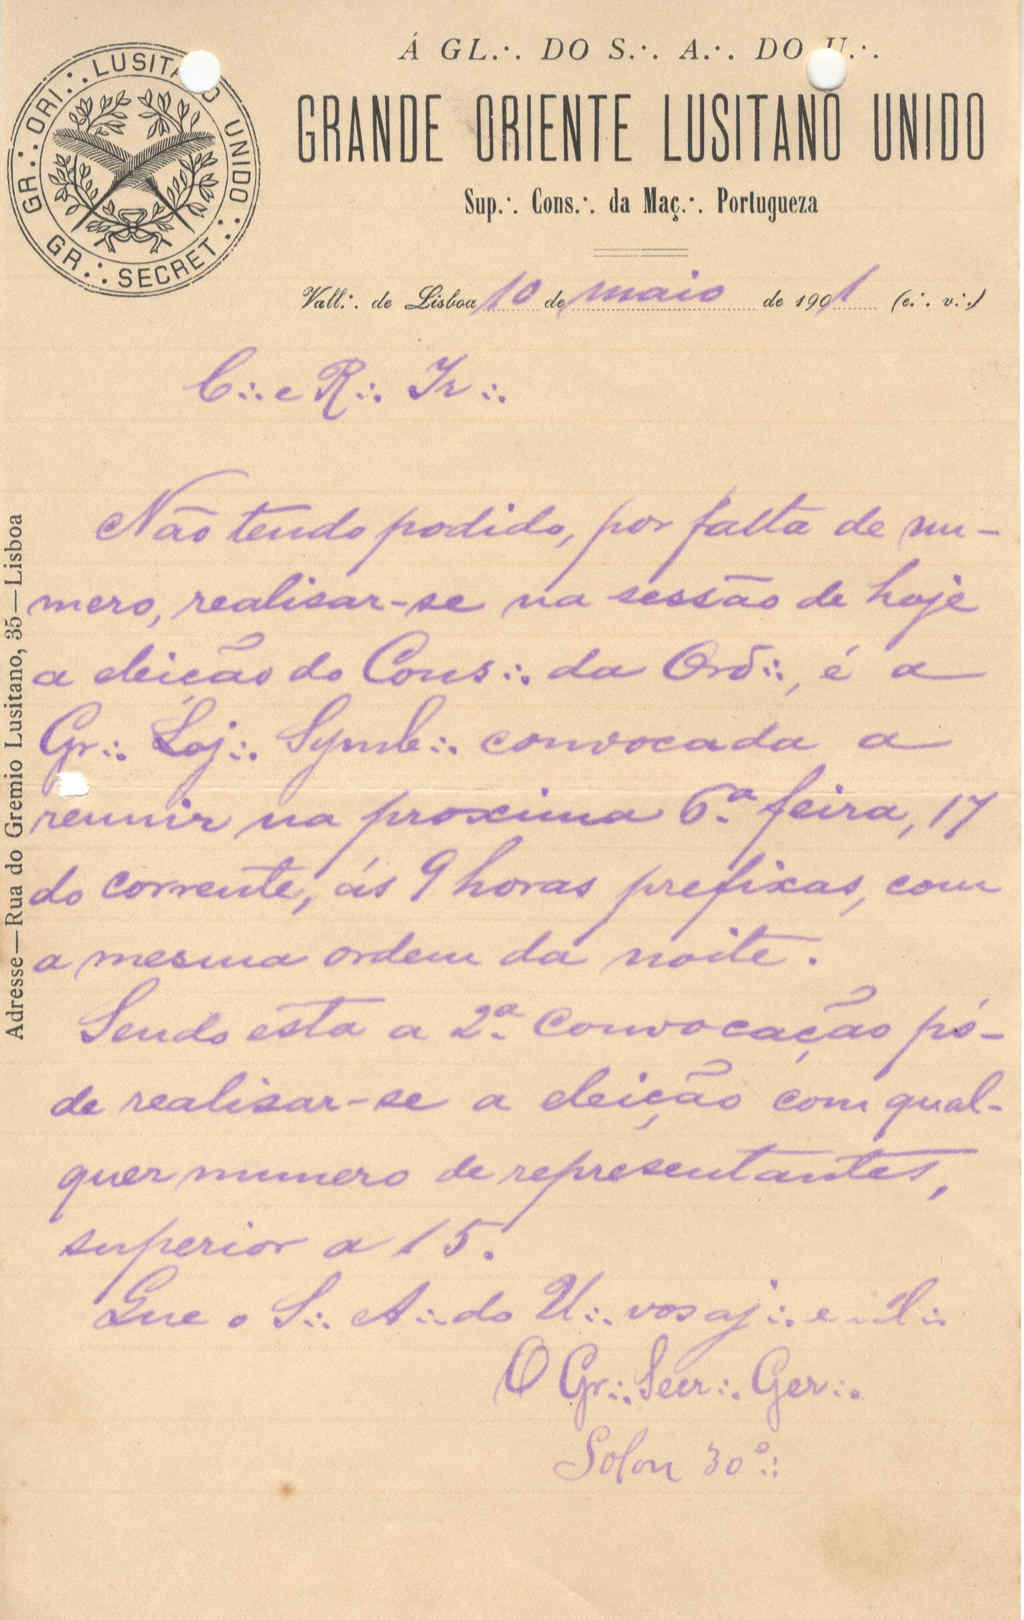 Á GL.·. DO S.·. A.·. DO U.·.
GRANDE ORIENTE LUSITANO UNIDO
Sup.·. Cons.·. da Maç.·. Portugueza
GR.·. ORI.·. LUSITANO UNIDO.·.
GR.·. SECRET.·.
Vall.·. de Lisboa 10 de maio de 1901 (e.·. v.·.)
C.·. e R.·. Ir.·.
Não tendo podido, por falta de nu-
mero, realisar-se na sessão de hoje
a eleição do Cons.·. da Ord.·., é a
Gr.·. Loj.·. Symb.·. convocada a
reunir na proxima 6.ª feira, 17
do corrente, ás 9 horas prefixas, com
a mesma ordem da noite.
Sendo esta a 2.ª convocação pó-
de realisar-se a eleição com qual-
quer numero de representantes,
superior a 15.
Que o S.·. A.·. do U.·. vos aj.·. e il.·.
O Gr.·. Secr.·. Ger.·.
Solon 30º.·.
Adresse—Rua do Gremio Lusitano, 35—Lisboa